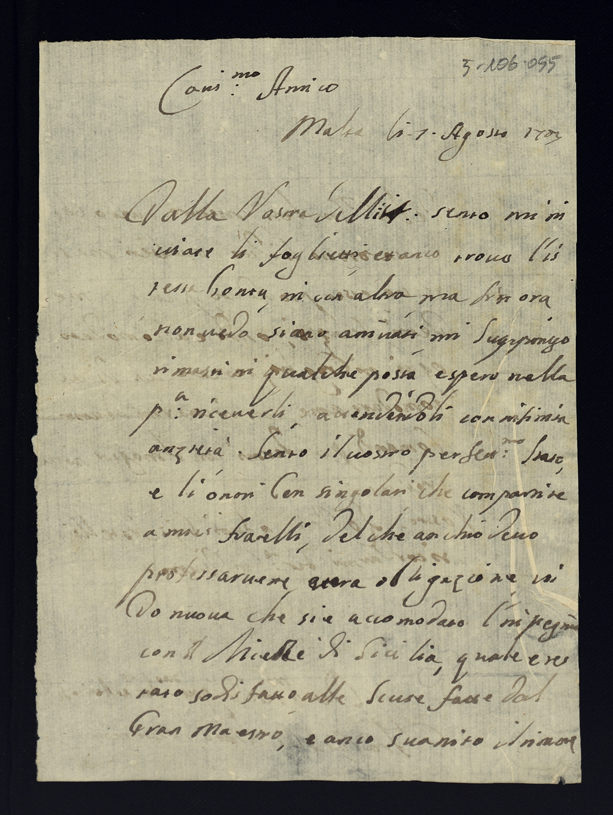 5-106-095
Caris:mo Amico
Malta li 7. Agosto 1703
Dalla Vostra delli sento mi in
viate li foglietti et anco trovo l'is
tessa bontà in un altra, ma sin ora
non vedo siano arrivati, mi suppongo
rimasti in qualche posta e spero nella
p:a riceverli, attendendoli con infinita
anzietà. Sento il vostro perfett:mo stato,
e li onori ben singolari che compartite
a miei fratelli, del che anch'io devo
professarvene vera obligazione, vi
do nuova che si è accomodato l'impegno
con il Vicerè di Sicilia, quale è res
tato sodisfatto alle scuse fatte dal
Gran Maestro, e anco svanito il rumore